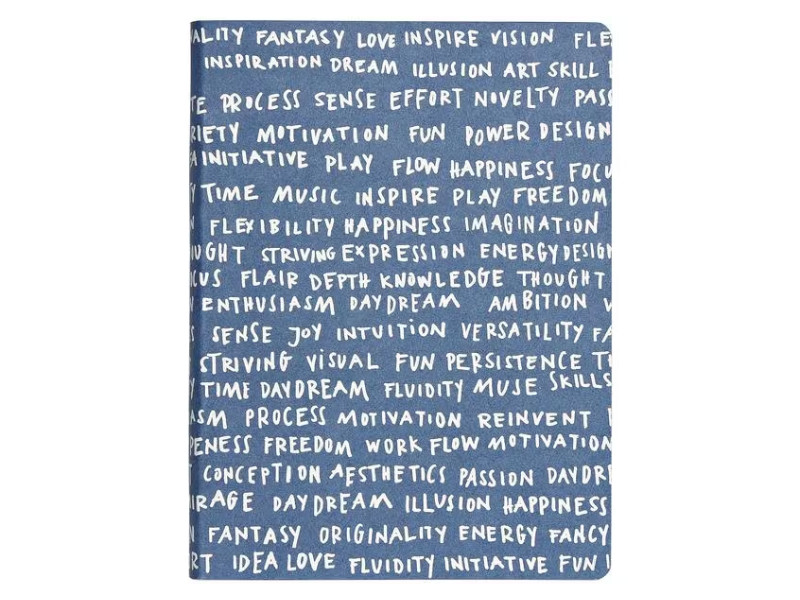 ALITY FANTASY LOVE INSPIRE VISION FLE
INSPIRATION DREAM ILLUSION ART SKILL
TE PROCESS SENSE EFFORT NOVELTY PASS
RIETY MOTIVATION FUN POWER DESIGN
A INITIATIVE PLAY FLOW HAPPINESS FOCU
Y TIME MUSIC INSPIRE PLAY FREEDOM
N FLEXIBILITY HAPPINESS IMAGINATION
OUGHT STRIVING EXPRESSION ENERGY DESIGN
CUS FLAIR DEPTH KNOWLEDGE THOUGHT
N ENTHUSIASM DAYDREAM AMBITION V
S SENSE JOY INTUITION VERSATILITY FA
STRIVING VISUAL FUN PERSISTENCE TH
Y TIME DAYDREAM FLUIDITY MUSE SKILLS
ASM PROCESS MOTIVATION REINVENT
PENESS FREEDOM WORK FLOW MOTIVATION
T CONCEPTION AESTHETICS PASSION DAYDRE
IRAGE DAYDREAM ILLUSION HAPPINESS
N FANTASY ORIGINALITY ENERGY FANCY
RT IDEA LOVE FLUIDITY INITIATIVE FUN I